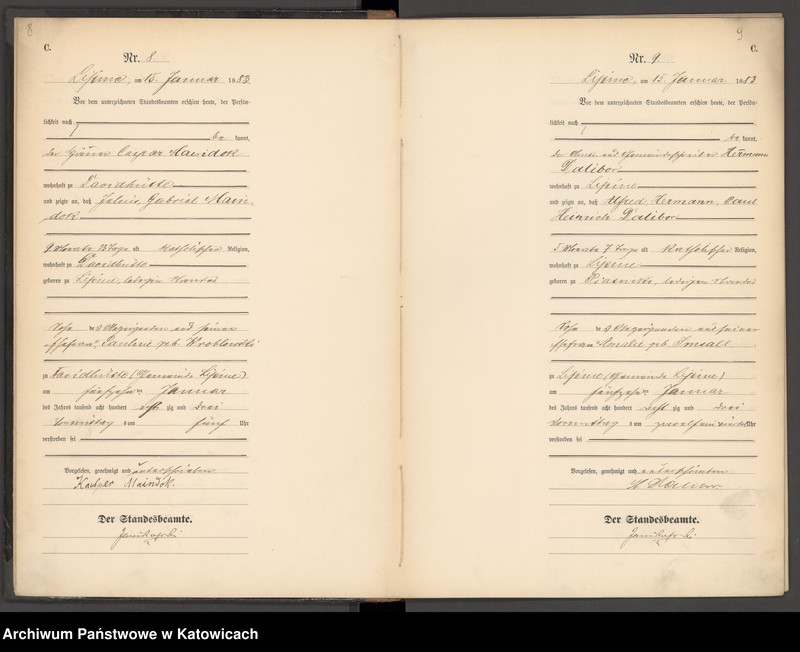 8
C.
Nr. 8
Lipine, am 15. Januar 1883
Vor dem unterzeichneten Standesbeamten erschien heute, der Persön-
lichkeit nach
be kannt,
der Caspar Maindok
wohnhaft zu Davidhütte
und zeigte an, daß Julius, Gabriel Main-
dok
9 Monate 13 Tage alt katholischer Religion,
wohnhaft zu Davidhütte
geboren zu Lipine, ledigen Standes
Sohn des Anzeigenden und seiner
Ehefrau, Pauline geb. Wroblowski
zu Davidhütte (Gemeinde Lipine)
am fünfzehnten Januar
des Jahres tausend acht hundert acht zig und drei
Vormittag s um fünf Uhr
verstorben sei
Vorgelesen, genehmigt und unterschrieben
Kasper Maindok.
Der Standesbeamte.
9
C.
Nr. 9
Lipine, am 15. Januar 1883
Vor dem unterzeichneten Standesbeamten erschien heute, der Persön-
lichkeit nach
be kannt,
der und Gemeindeschreiber Hermann
Dalibor
wohnhaft zu Lipine
und zeigte an, daß Alfred, Hermann, Paul
Heinrich Dalibor
5 Monate 7 Tage alt katholischer Religion,
wohnhaft zu Lipine
geboren zu Piasniki, ledigen Standes
Sohn des Anzeigenden und seiner
Ehefrau Amalie geb.
zu Lipine (Gemeinde Lipine)
am fünfzehnten Januar
des Jahres tausend acht hundert acht zig und drei
Vormittag s um Uhr
verstorben sei
Vorgelesen, genehmigt und unterschrieben
H Dalibor
Der Standesbeamte.
Archiwum Państwowe w Katowicach